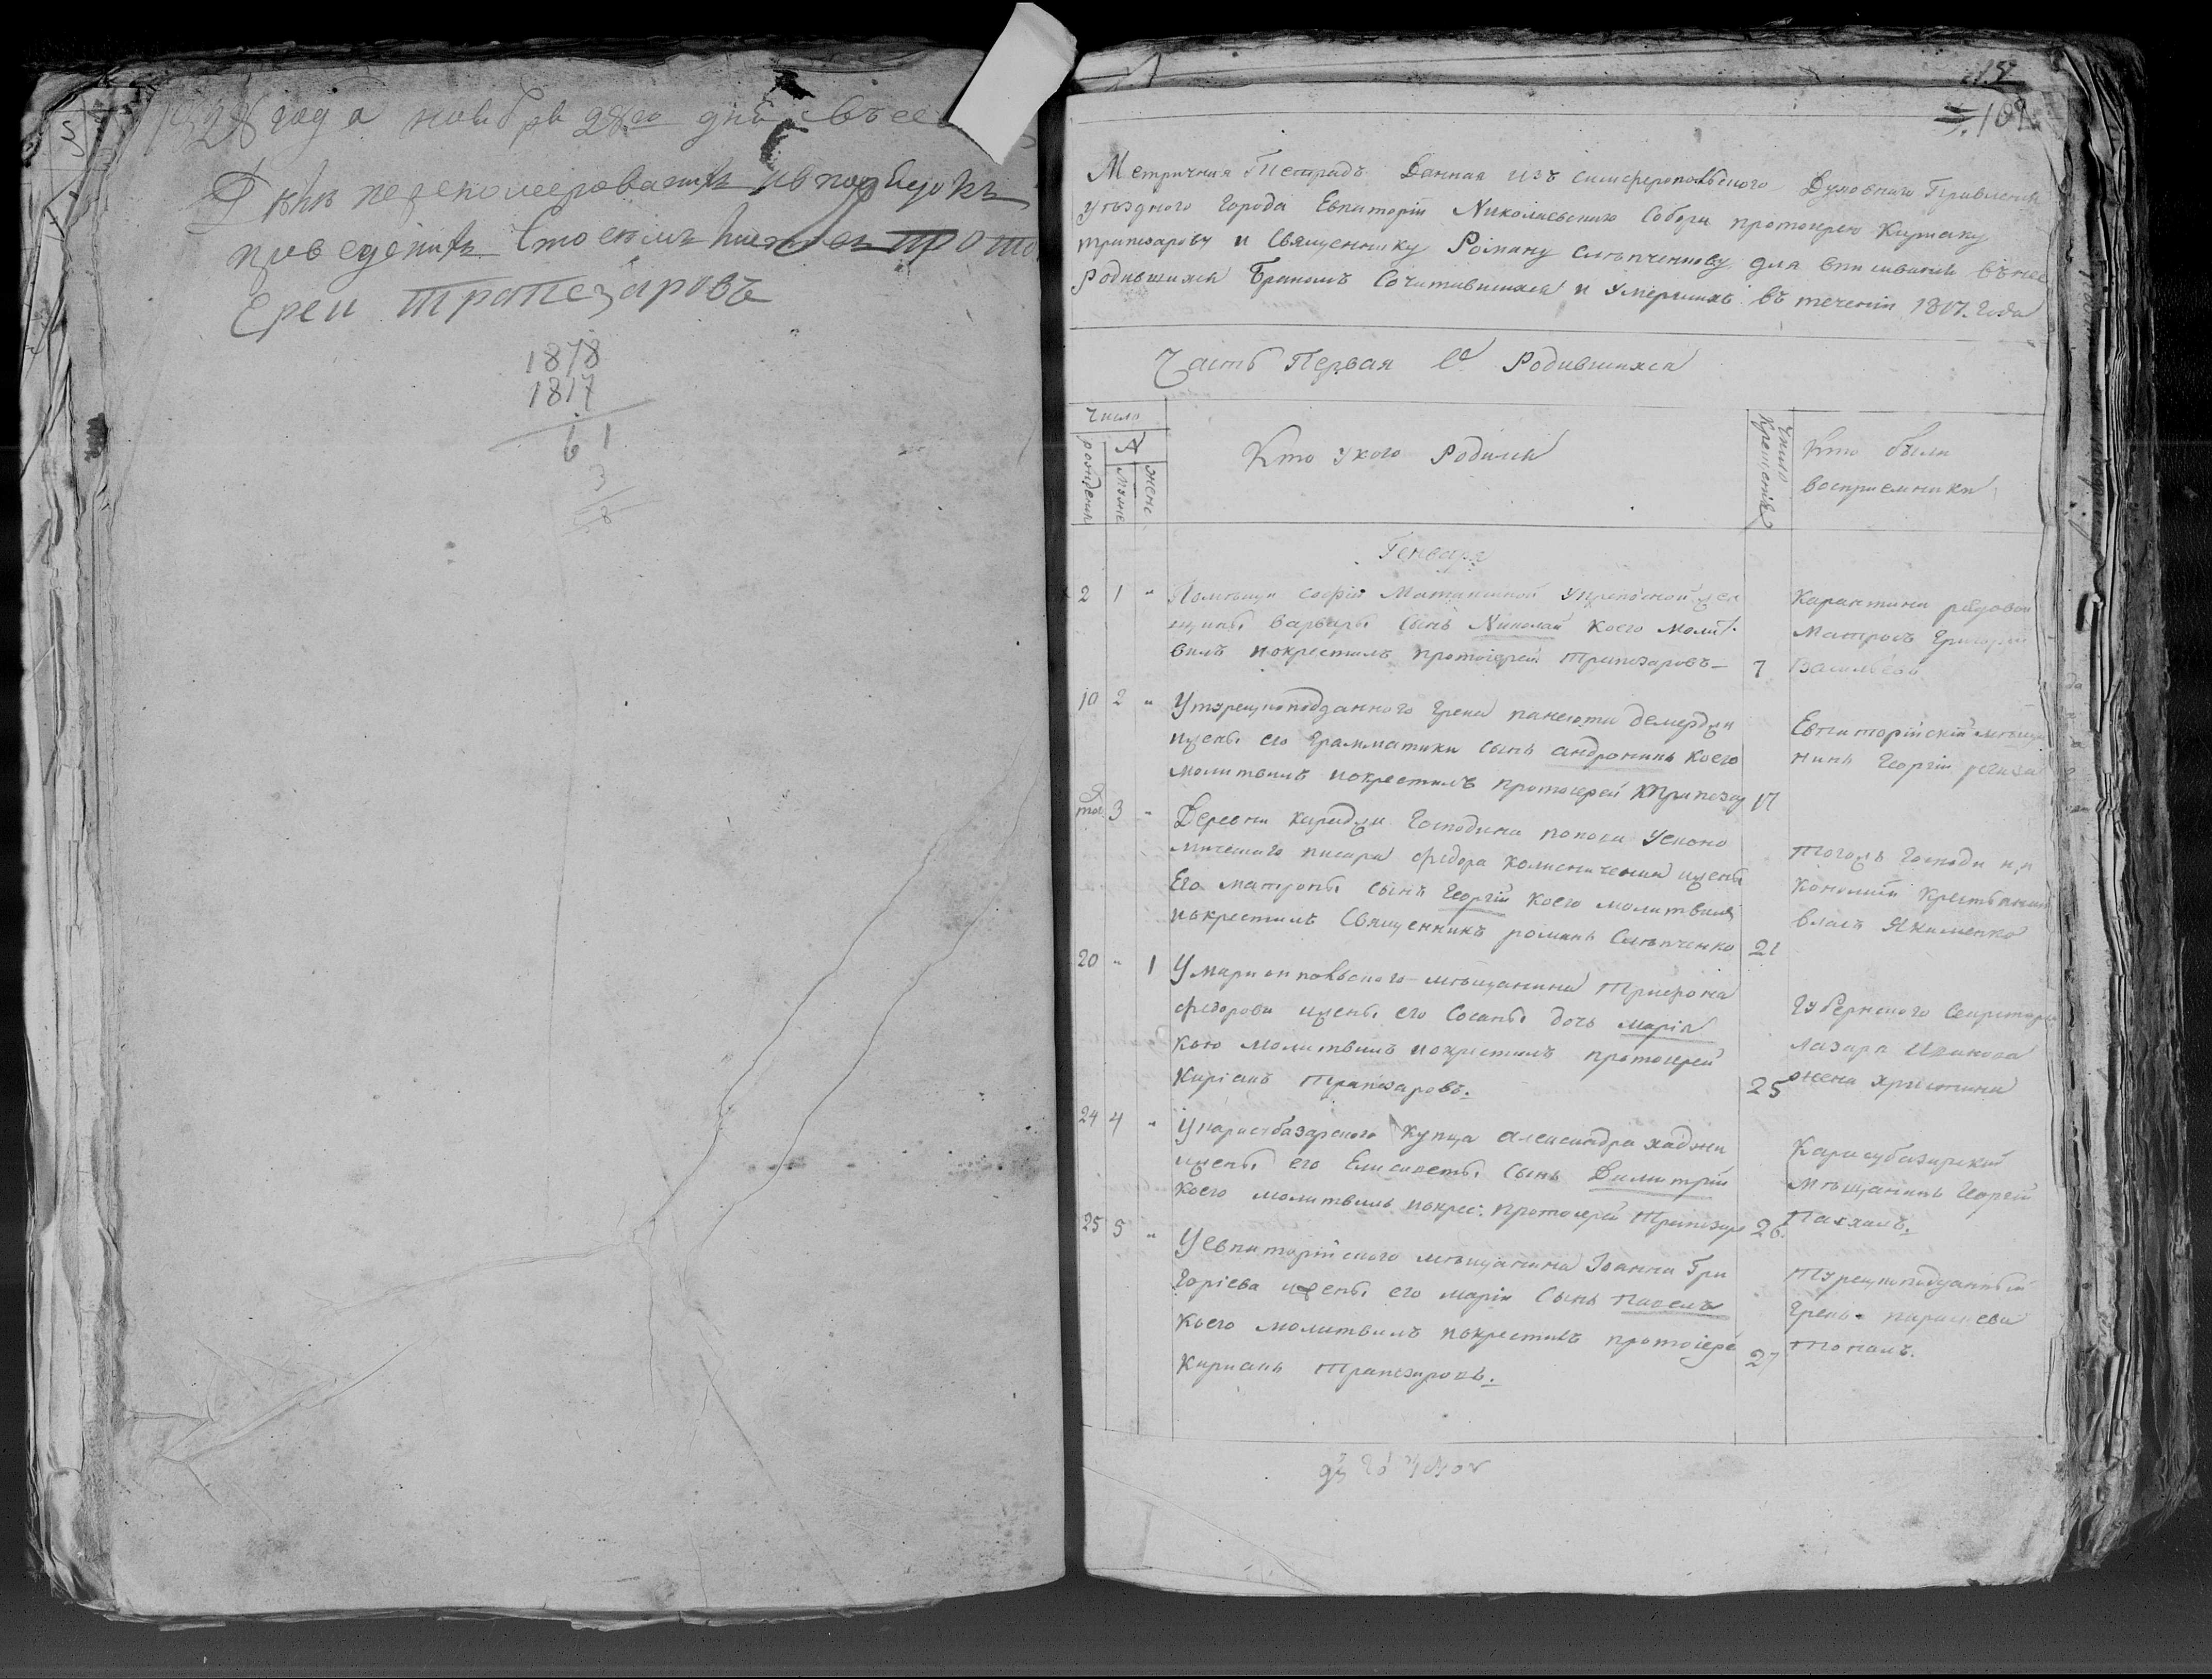 1828 года ноября 28го дня въсей
перекомерованихъ ивпорядокъ
приведенихъ прото
Ерей трапезаровъ
1878
1817
61
15
109
Метричная Тетрадь Данная изъ симферопольского Духовнаго Правления
уѣзднаго города Евпаторіи Николаевскаго Собора протоиерею Кириаку
трапезарову и Священнику Роману слѣпченкову для вписывания въ нее
Родившихся Бракомъ Сочитавшихся и Умершихъ въ течении 1817. Года
Часть Первая о Родившихся
Число
рожденія
мужс
женс
Кто укого Родился
Число Крещенія
Кто были
восприемники
Генваря
2 1 " Помѣщи софіи упрепосной жен
щины варвары Сынъ Николай коего молит
вилъ покрестилъ протоіерей трапезаровъ 7
Карантина рядовой
матросъ Григорій
Васильевъ
10 2 " Утурецкоподданного Грека панаюти демерджи
ижены его Грамматики сынъ андроникъ коего
молитвилъ покрестилъ протоиерей К трапезар 17
Евпаторійскій мѣща
нинъ Георгій
того 3 " Деревни Караджи Господина попова Уеконо
мического писаря федора колисниченка ижены
Его матроны сынъ Георгій коего молитвилъ
покрестилъ Священникъ романъ Слѣпченко 21
тогожъ Господина
Кономии Крестьянинъ
власъ Якименко
20 " 1 У мариопольского мѣщанина Трифона
федорова ижены его Сосаны дочь марія
кою молитвилъ покрестилъ протоиерей
Киріакъ трапезаровъ. 25
Губернского Секретаря
лазаря Иванова
жена христина
24 4 " У карасубазарского купца александра хаджи
ижены его Елисаветы Сынъ Димитрій
коего молитвилъ покрес: протоиерей Трапезаро 26.
Карасубазарский
мѣщанинъ Георгій
Пасхалъ.
25 5 " У евпаторійского мѣщанина Іоанна Гри
горіева ижены его маріи Сынъ павелъ
коего молитвилъ покрестилъ протоіере
Кириакъ трапезаровъ. 27
Турецкоподданный
Грекъ параскева
Топалъ.